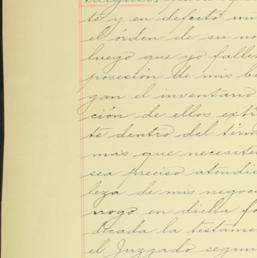 te y en defecto un
el órden de su no
luego que yo falle
posesión de mis b
gan el inventario
ción de ellos extr
te dentro del térm
mas que necesite
sea preciso atendi
leza de mis negoc
rrogo en dicha fo
dicada la testame
el Juzgado segun